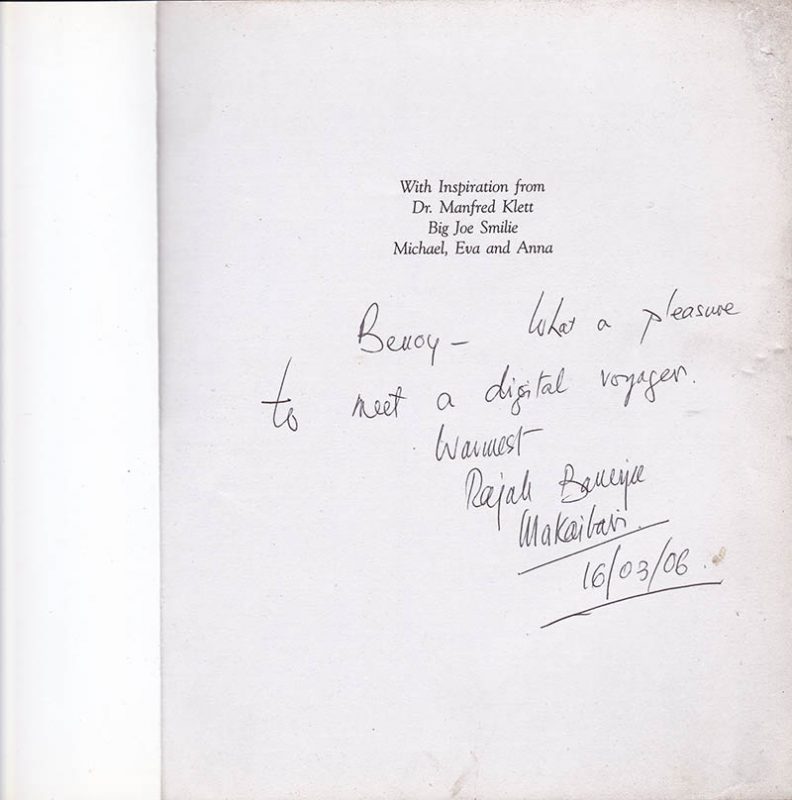 With Inspiration from
Dr. Manfred Klett
Big Joe Smilie
Michael, Eva and Anna
Benoy – What a pleasure
to meet a digital voyager.
Warmest
Rajah Banerjee
Makaibari
16/03/06.